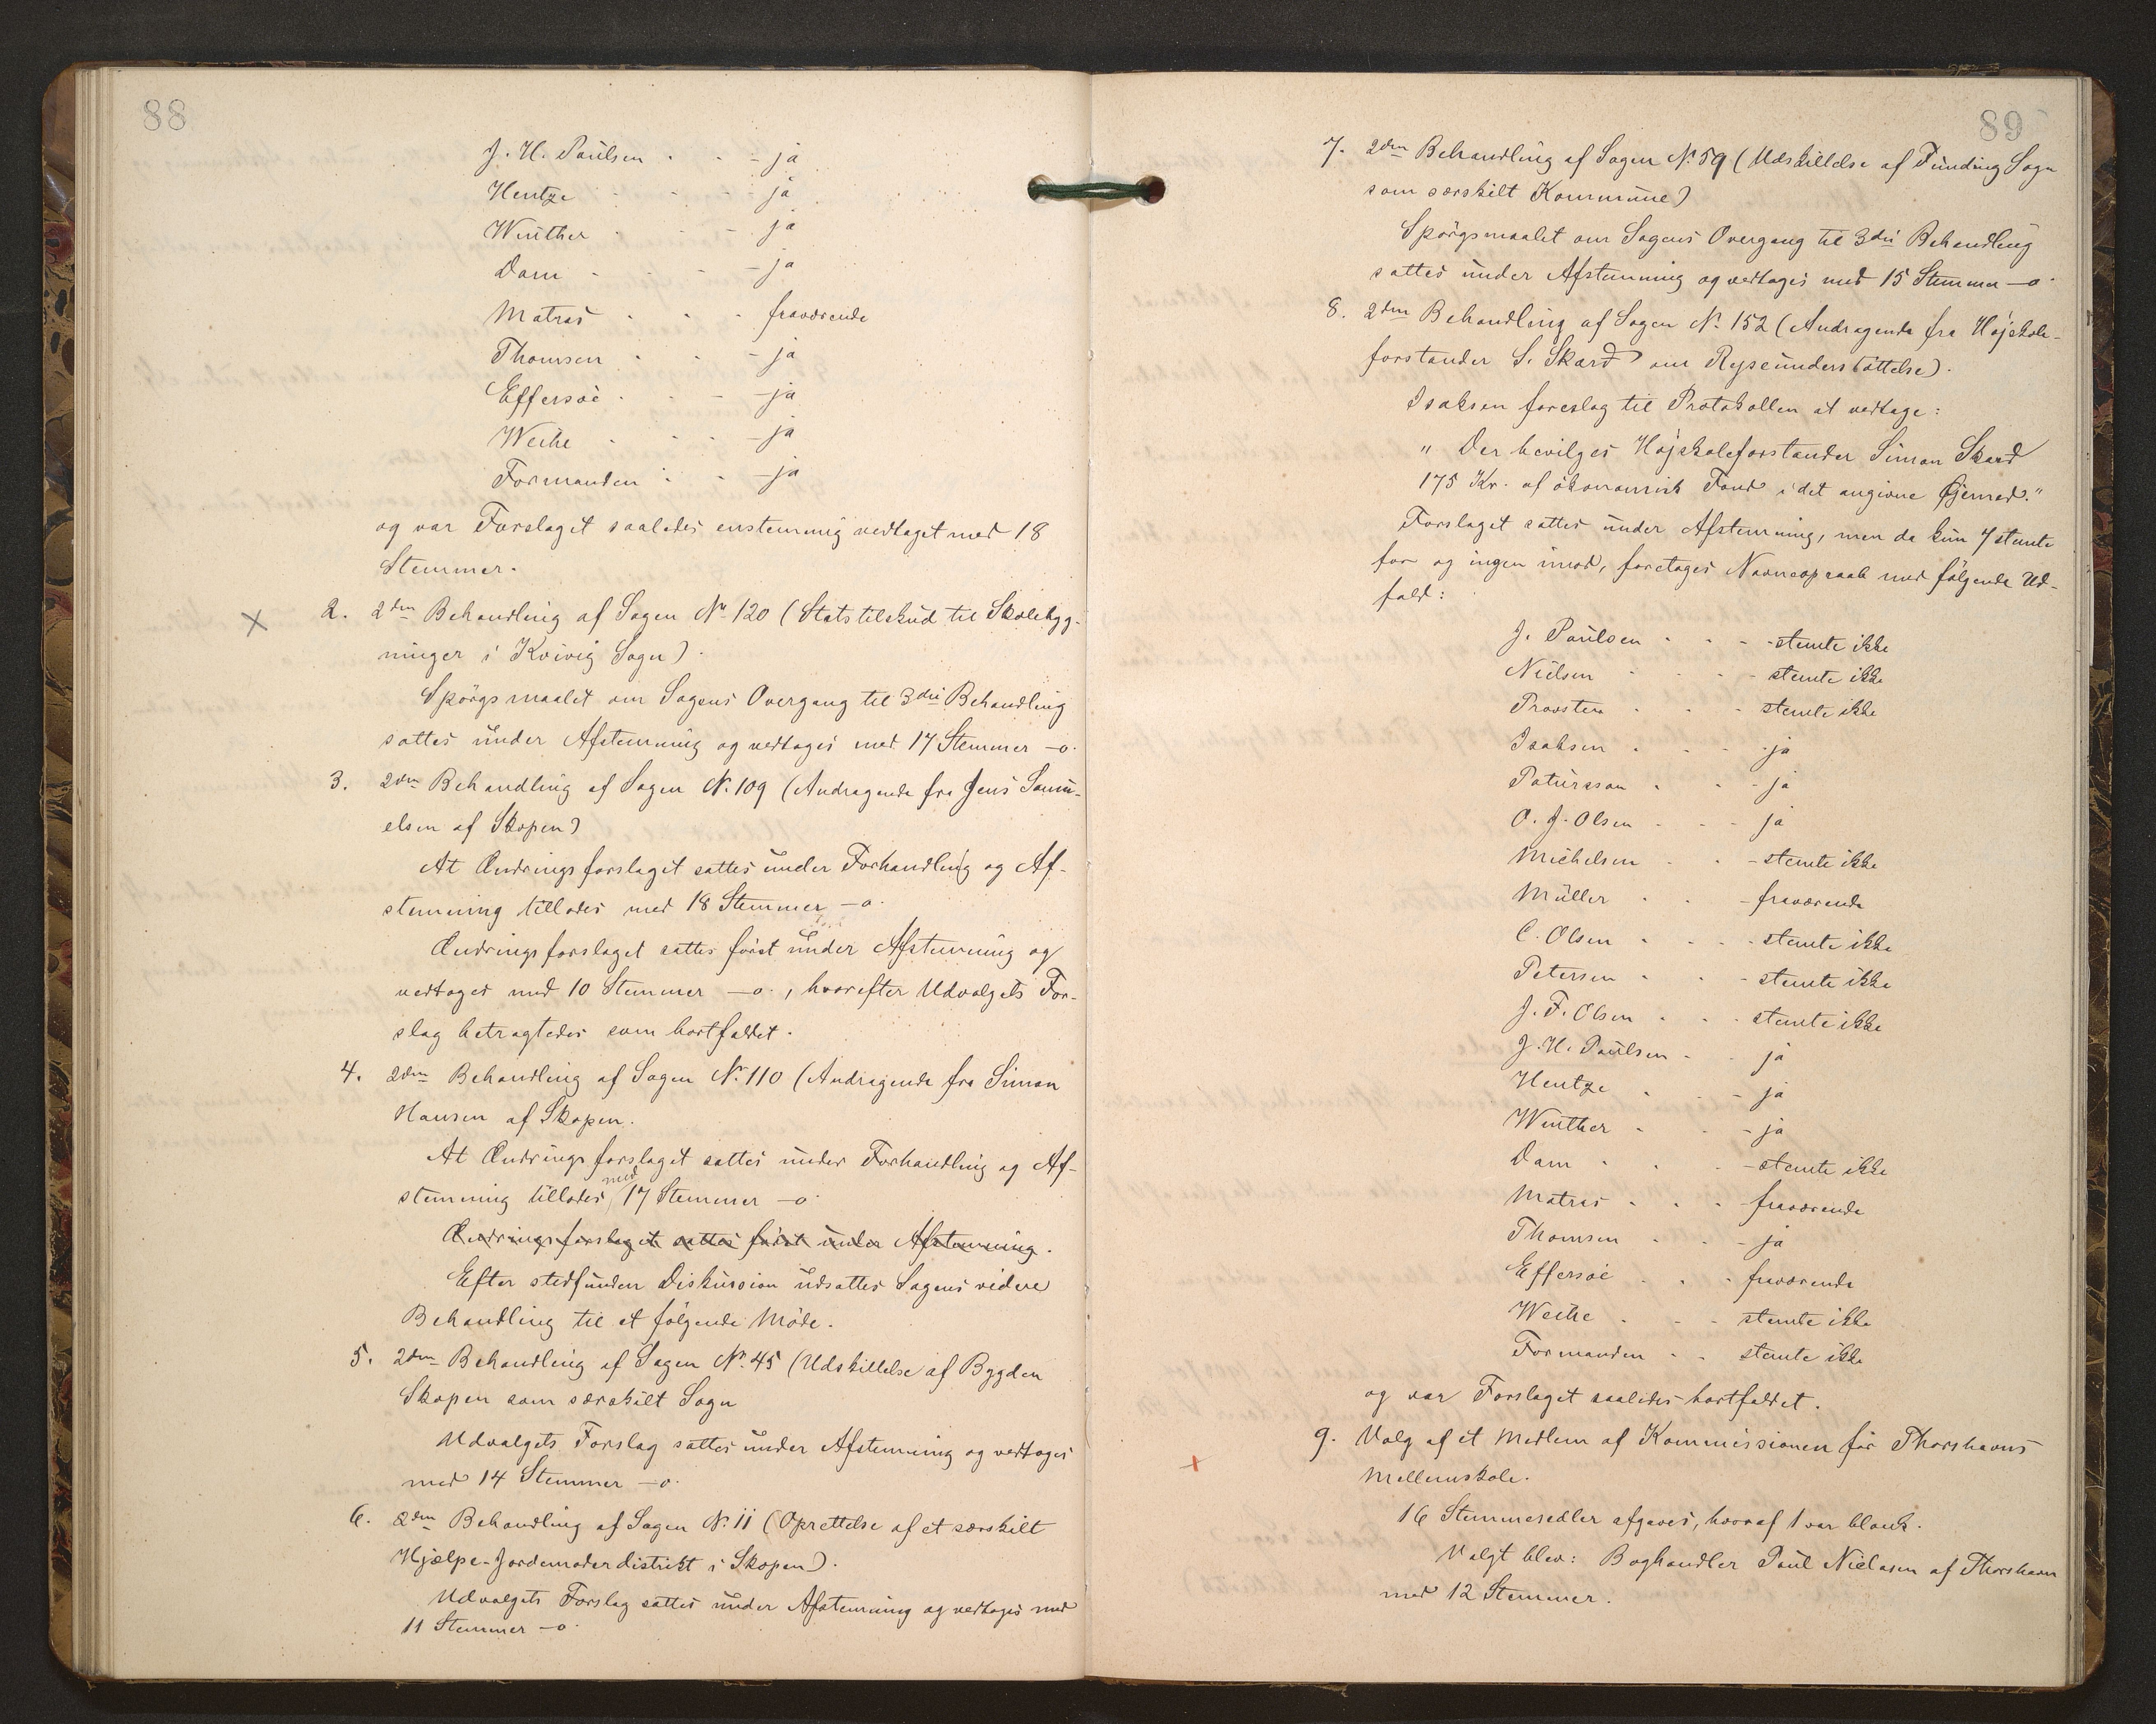 88
J. H. Poulsen - - - ja
Hentze - - - ja
Winther - - - ja
Dam - - - ja
Matras - - - fraværende
Thomsen - - - ja
Effersøe - - - ja
Weihe - - - ja
Formanden - - - ja
og var Forslaget saaledes enstemmig vedtaget med 18
Stemmer.
2. 2den Behandling af Sagen No 120 (Statstilskud til Skolebyg-
ninger i Kvivig Sogn).
Spörgsmaalet om Sagens Overgang til 3die Behandling
sattes under Afstemning og vedtages med 17 Stemmer - o.
3. 2den Behandling af Sagen No. 109 (Andragende fra Jens Samu-
elsen af Skopen)
At Ændringsforslaget sattes under Forhandling og Af-
stemning tillodes med 18 Stemmer - o.
Ændringsforslaget sattes först under Afstemning og
vedtages med 10 Stemmer - o., hvorefter Udvalgets For-
slag betragtedes som bortfaldet.
4. 2den Behandling af Sagen No. 110 (Andragende fra Simon
Hansen af Skopen.
At Ændringsforslaget sattes under Forhandling og Af-
stemning tillodes med 17 Stemmer - o.
Ændringsforslaget sattes först under Afstemning.
Efter stedfunden Diskussion udsattes Sagens videre
Behandling til et følgende Möde.
5. 2den Behandling af Sagen No. 45 (Udskillelse af Bygden
Skopen som særskilt Sogn
Udvalgets Forslag sattes under Afstemning og vedtages
med 14 Stemmer - o.
6. 2den Behandling af Sagen No. 11 (Oprettelse af et særskilt
Hjælpe-Jordemoderdistrikt i Skopen).
Udvalgets Forslag sattes under Afstemning og vedtages med
11 Stemmer - o.
89
7. 2den Behandling af Sagen No. 59 (Udskillelse af Funding Sogn
som særskilt Kommune)
Spörgsmaalet om Sagens Overgang til 3die Behandling
sattes under Afstemning og vedtages med 15 Stemmer - o.
8. 2den Behandling af Sagen No. 152 (Andragende fra Höjskole-
forstander S. Skard om Rejseunderstöttelse).
Isaksen foreslog til Protokollen at vedtage:
" Der bevilges Höjskoleforstander Simon Skard
175 Kr. af ökonomisk Fond i det angivne Øjemed."
Forslaget sattes under Afstemning, men da kun 7 stemte
for og ingen imod, foretages Navneopraab med følgende Ud-
fald:
J. Poulsen - - - stemte ikke
Nielsen - - - stemte ikke
Provsten - - - stemte ikke
Isaksen - - - ja
Patursson - - - ja
O. J. Olsen - - - ja
Michelsen - - - stemte ikke
Müller - - - fraværende
C. Olsen - - - stemte ikke
Petersen - - - stemte ikke
J. F. Olsen - - - stemte ikke
J. H. Poulsen - - ja
Hentze - - - ja
Winther - - - ja
Dam - - - stemte ikke
Matras - - - fraværende
Thomsen - - - ja
Effersøe - - - fraværende
Weihe - - - stemte ikke
Formanden - - stemte ikke
og var Forslaget saaledes bortfaldet.
9. Valg af et Medlem af Kommissionen for Thorshavns
Mellemskole.
16 Stemmesedler afgaves, hvoraf 1 var blank.
Valgt blev: Boghandler Poul Nielasen af Thorshavn
med 12 Stemmer.